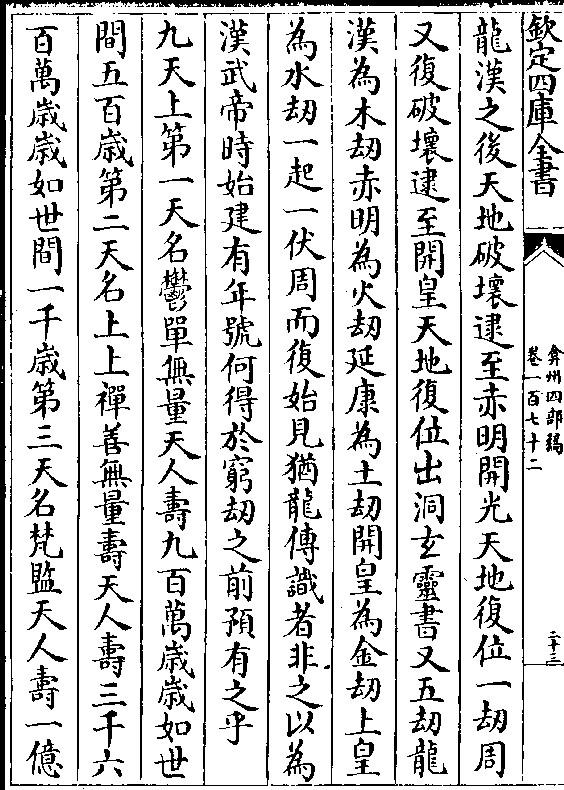 欽定四庫全書
弇州四部稿
卷一百七十二
二十三
龍漢之後天地破壞逮至赤明開光天地復位一刼周
又復破壞逮至開皇天地復位出洞玄靈書又五刼龍
漢為木刼赤明為火刼延康為土刼開皇為金刼上皇
為水刼一起一伏周而復始見猶龍傳識者非之以為
漢武帝時始建有年號何得於窮刼之前預有之乎
九天上第一天名鬱單無量天人壽九百萬歲歲如世
間五百歲第二天名上上禪善無量壽天人壽三千六
百萬歲歲如世間一千歲第三天名梵監天人壽一億